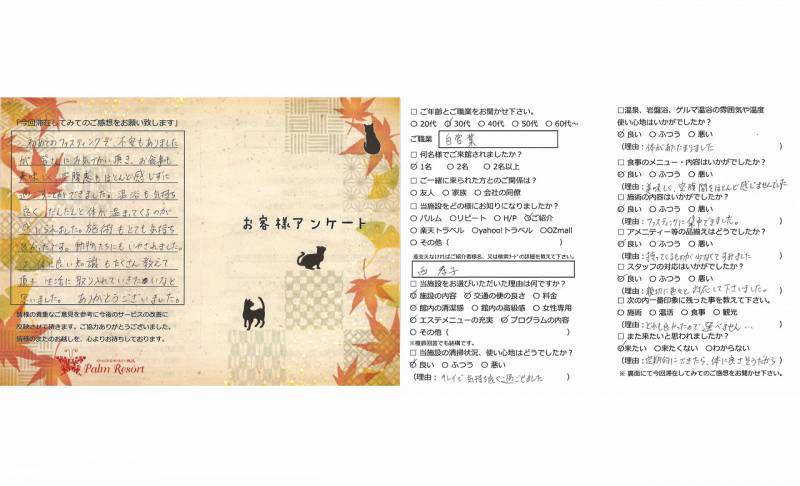 「今回滞在してみてのご感想をお願い致します」
初めてのファスティングで、不安もありました
が、皆さんにお気づかい頂き、お食事も
美味しく、空腹感もほとんど感じずに
過ごすことができました。温浴も気持ち
良く、だんだんと体が温まってくるのが
施術もとても気持ち
良かったです。動物たちにもいやされました。
良い知識もたくさん教えて
頂き 生活に取り入れていきたいなと
思いました。ありがとうございました。
皆様の貴重なご意見を参考に今後のサービスの改善に
反映させて頂きます。ご協力ありがとうございました。
皆様のまたのお越しを、心よりお待ちしております。
Palm Resort
お客様アンケート
□ ご年齢とご職業をお聞かせ下さい。
○ 20代 ○ 30代 ○ 40代 ○ 50代 ○ 60代~
ご職業 自営業
□ 何名様でご来館されましたか?
○ 1名 ○ 2名 ○ 2名以上
□ ご一緒に来られた方とのご関係は?
○ 友人 ○ 家族 ○ 会社の同僚
□ 当施設をどの様にお知りになりましたか?
○ パルム ○リピート ○ H/P ○ご紹介
○ 楽天トラベル ○yahoo!トラベル ○OZmall
○ その他( )
差支えなければご紹介者様名、又は検索ワードの詳細を教えて下さい。
□ 当施設をお選びいただいた理由は何ですか?
○ 施設の内容 ○ 交通の便の良さ ○ 料金
○ 館内の清潔感 ○ 館内の高級感 ○ 女性専用
○ エステメニューの充実 ○ プログラムの内容
○ その他( )
※複数回答でも結構です。
□ 当施設の清掃状況、使い心地はどうでしたか?
○ 良い ○ ふつう ○ 悪い
(理由: キレイで気持ち良く過ごせました )
□温泉、岩盤浴、ゲルマ温浴の雰囲気や温度
使い心地はいかがでしたか?
○ 良い ○ ふつう ○ 悪い
(理由: 体があたたまりました )
□ 食事のメニュー・内容はいかがでしたか?
○ 良い ○ ふつう ○ 悪い
(理由: 美味しく、空腹間をほとんど感じませんでした
□ 施術の内容はいかがでしたか?
○ 良い ○ ふつう ○ 悪い
(理由: ファスティングに集中できました。 )
□ アメニティー等の品揃えはどうでしたか?
○ 良い ○ ふつう ○ 悪い
(理由: 持ってくるものが少なくてすみました )
□ スタッフの対応はいかがでしたか?
○ 良い ○ ふつう ○ 悪い
(理由: 親切に色々と対応して下さいました。 )
□ 次の内一番印象に残った事を教えて下さい。
○ 施術 ○ 温活 ○ 食事 ○ 観光
(理由: どれも良かったので選べません… )
□ また来たいと思われましたか?
○来たい ○来たくない ○わからない
(理由: 定期的にできたら、体に良さそうだから )
※ 裏面にて今回滞在してみてのご感想をお聞かせ下さい。